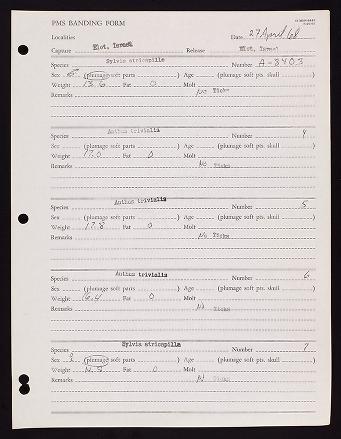 PMS BANDING FORM
Localities Date 27 April 68
Capture Elot, Israel Release Elot, Israel
Species Sylvia atricapilla Number A-8403
Sex (plumage soft parts ) Age (plumage soft pts. skull )
Weight 15.6 Fat 0 Molt
Remarks No Ticks
Species Anthus trivialis Number 4
Sex (plumage soft parts ) Age (plumage soft pts. skull )
Weight 17.0 Fat 0 Molt
Remarks No Ticks
Species Anthus trivialis Number 5
Sex (plumage soft parts ) Age (plumage soft pts. skull )
Weight 17.8 Fat 0 Molt
Remarks No Ticks
Species Anthus trivialis Number 6
Sex (plumage soft parts ) Age (plumage soft pts. skull )
Weight Fat 0 Molt
Remarks No Ticks
Species Sylvia atricapilla Number 7
Sex (plumage soft parts ) Age (plumage soft pts. skull )
Weight Fat 0 Molt
Remarks No Ticks